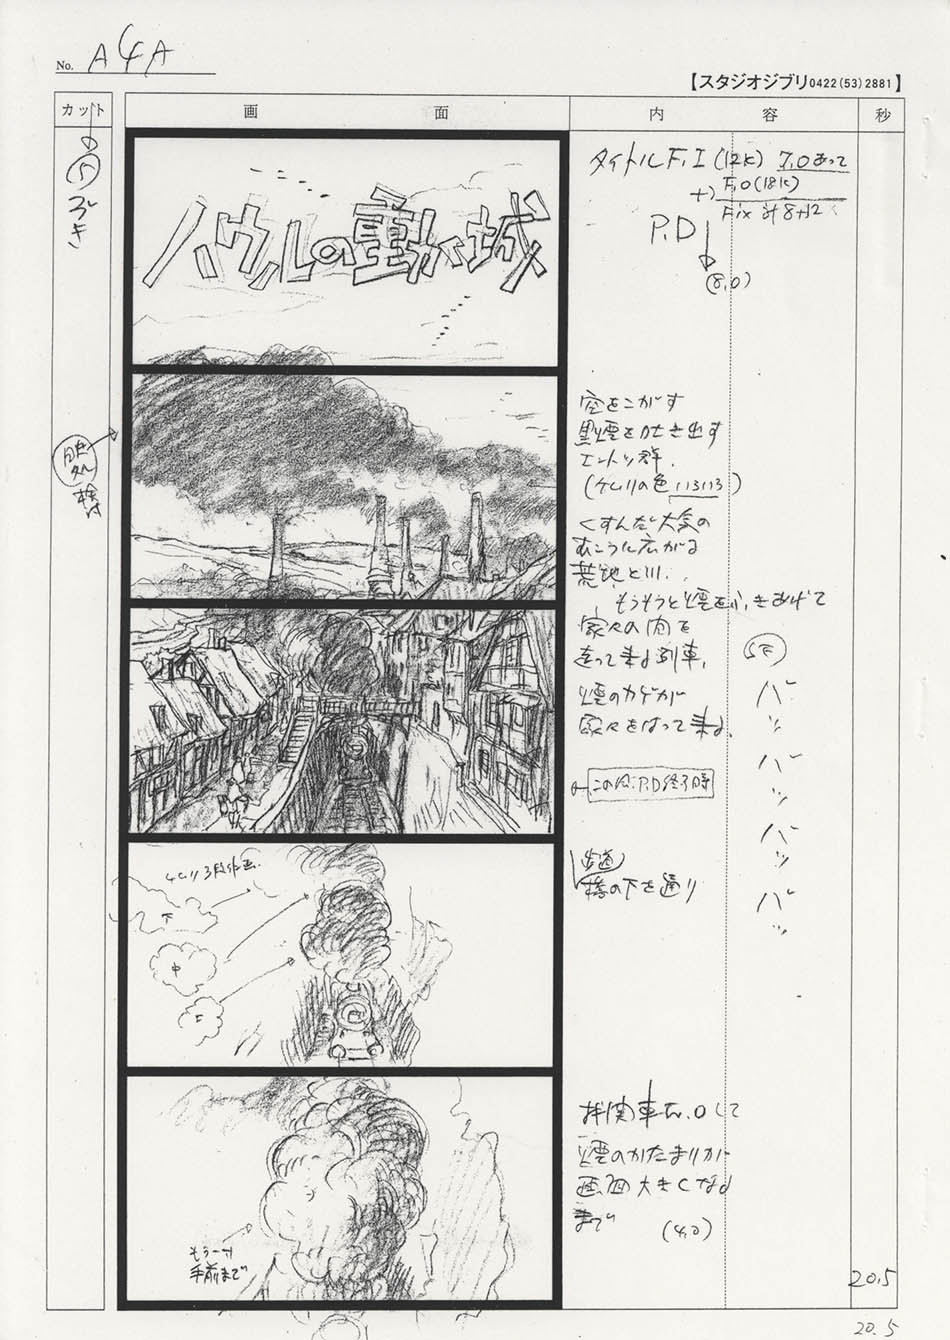 No. A4A
【スタジオジブリ0422(53)2881】
カット
画面
内容
秒
⑤
つづき
タイトルF.I (12K) 7.0あって
+) F.O(18K)
Fix 計8+12
P.D
(8.0)
ハウルの動く城
空をこがす
黒煙を吐き出す
エントツ群.
(ケムリの色いろいろ)
くすんだ大気の
むこうに広がる
荒地と川..
もうもうと煙をふきあげて
家々の間を
走って来る列車.
煙のカゲが
家々をはって来る.
(SE)
バ
ッ
バ
ッ
バ
ッ
バ
ッ
この位 P.D終了時
歩道
橋の下を通り
ケムリ3段作画.
下
中
上
機関車F.Oして
煙のかたまりが
画面大きくなる
まで
(4.0)
もう一つ
手前まで
20.5
20.5